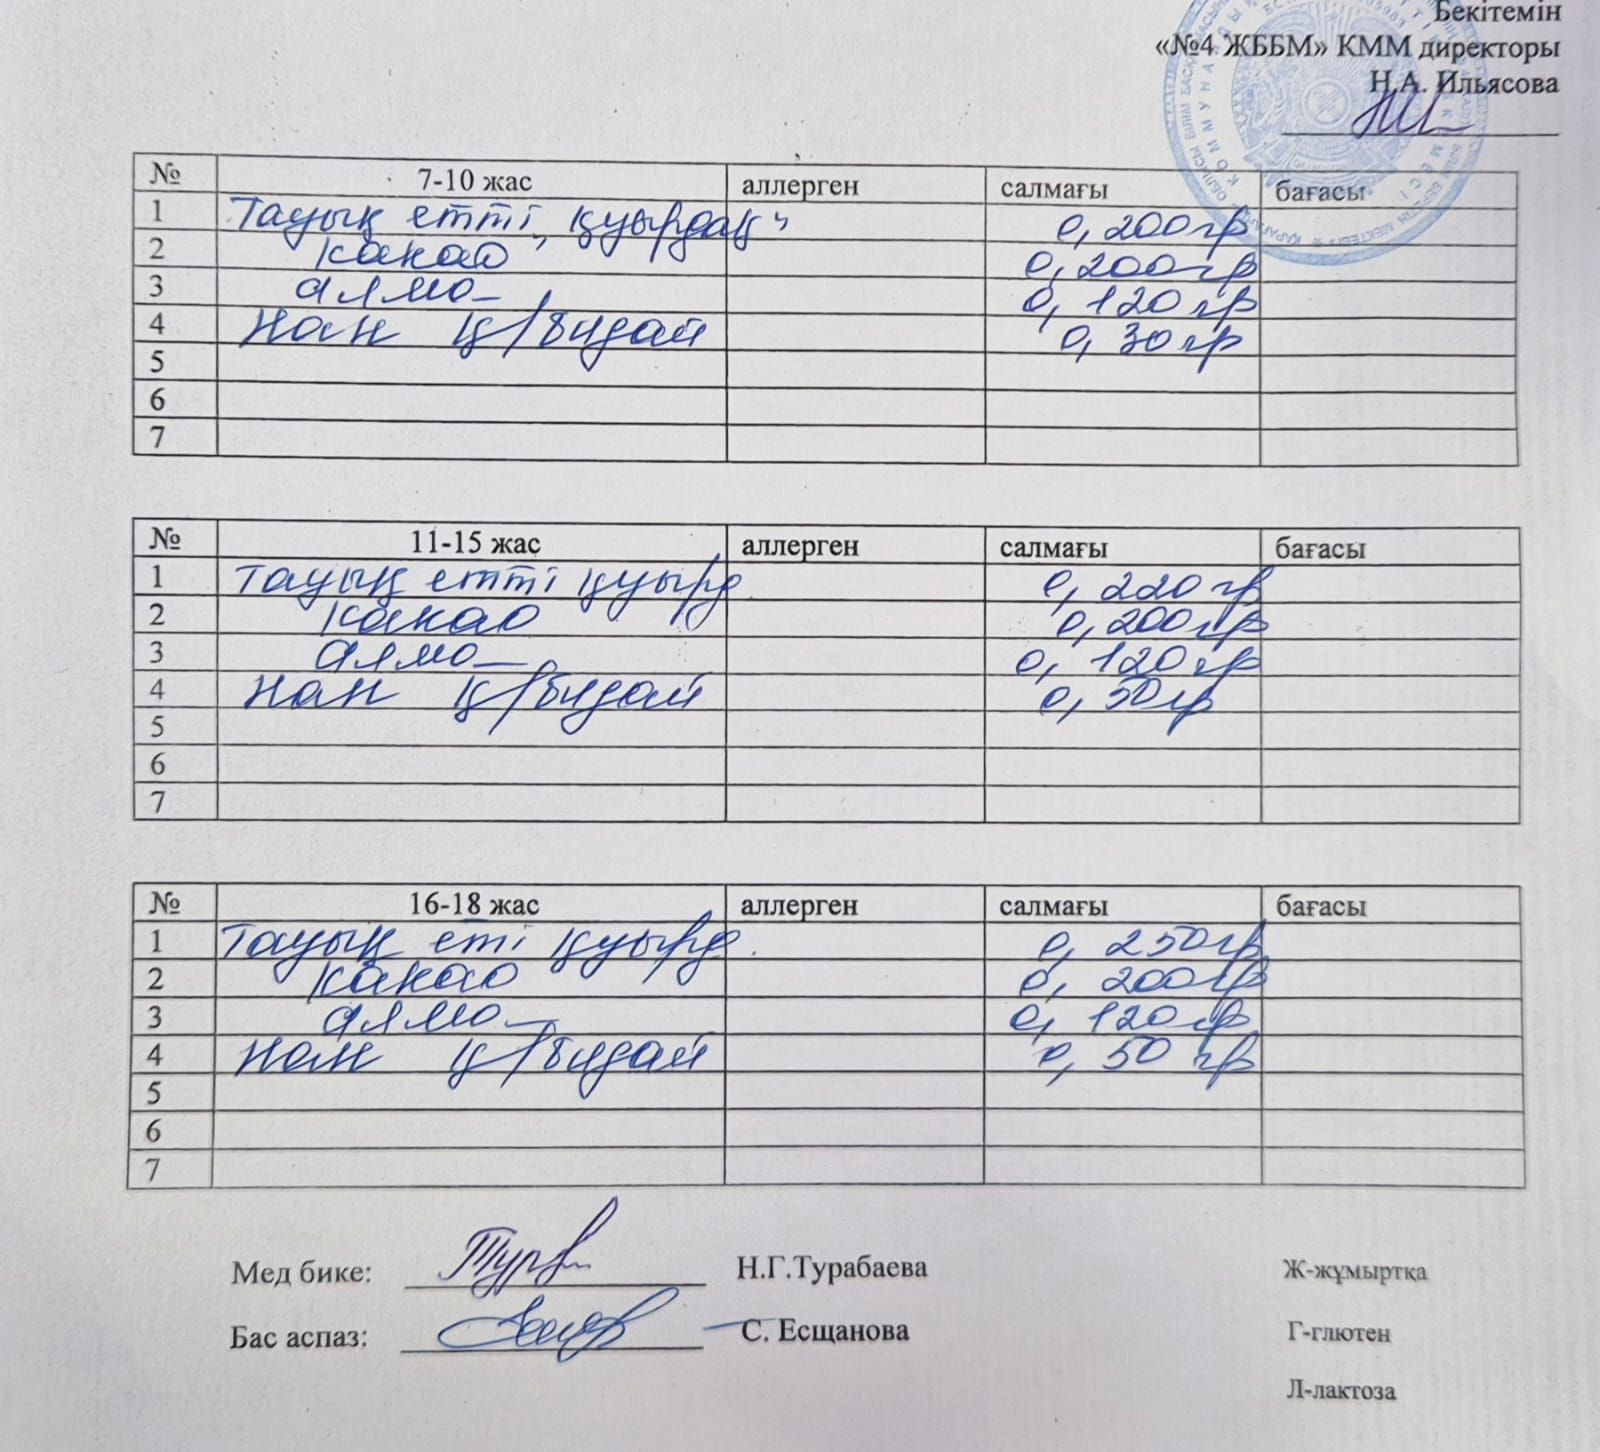 Бекітемін
«№4 ЖББМ» КММ директоры
Н.А. Ильясова
№ 7-10 жас аллерген салмағы бағасы
1 Тауық етті „қуырдақ“ 0,200гр
2 какао 0,200гр
3 алма 0,120гр
4 Нан қ/бидай 0,30гр
5
6
7
№ 11-15 жас аллерген салмағы бағасы
1 Тауық етті қуырд 0,220гр
2 какао 0,200гр
3 алма 0,120гр
4 Нан қ/бидай 0,50гр
5
6
7
№ 16-18 жас аллерген салмағы бағасы
1 Тауық еті қуырд. 0,250гр
2 какао 0,200гр
3 алма 0,120гр
4 Нан қ/бидай 0,50 гр
5
6
7
Мед бике: Н.Г.Турабаева Ж-жұмыртқа
Бас аспаз: С. Есщанова Г-глютен
Л-лактоза